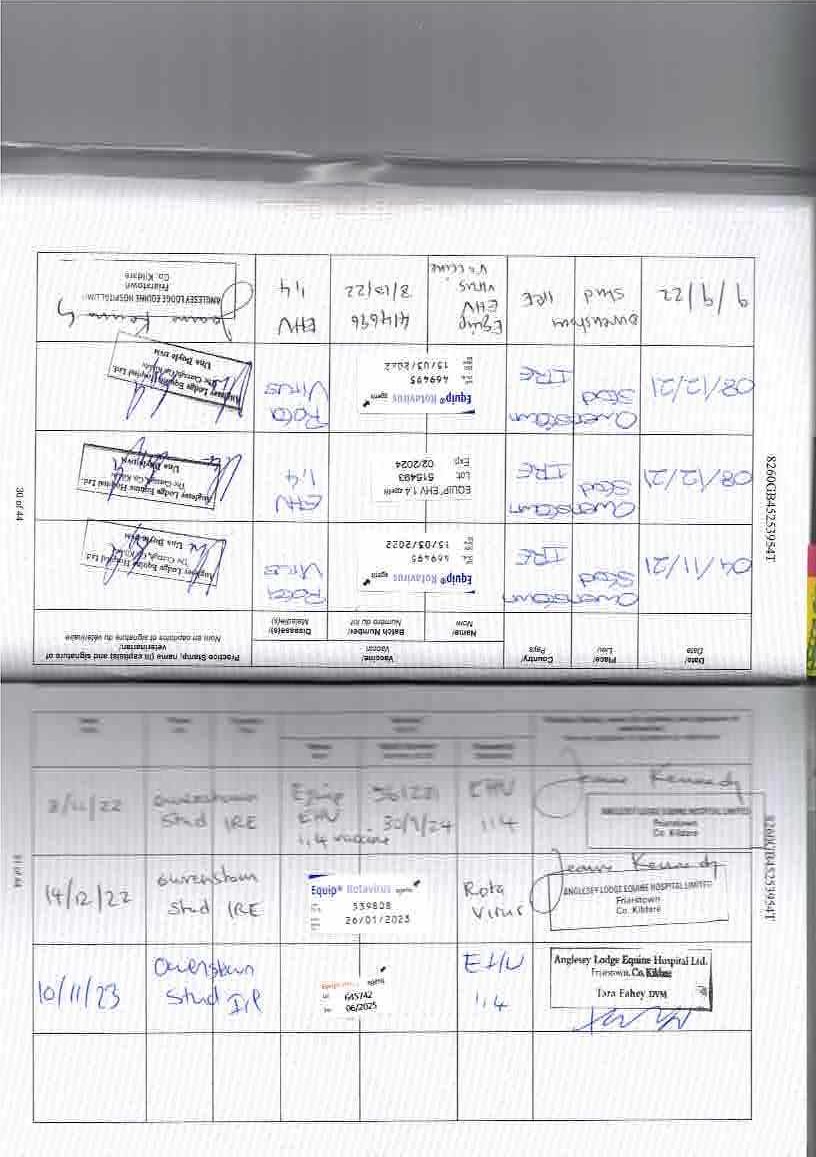 8260GB45253954T
30 of 44
Date/ Place/ Country/ Vaccine/ Practice Stamp, name (in capitals) and signature of
Date Lieu Pays Vaccin veterinarian/
Name/ Batch Number/ Disease(s)/ Nom en capitales et signature du vétérinaire
Nom Numéro du lot Maladie(s)
04/11/21 Owenstown Stud IRE
Equip® Rotavirus zoetis
469495
15/03/2022
Rota Virus
Anglesey Lodge Equine Hospital Ltd.
The Curragh, Co. Kildare
Una Doyle DVM
08/12/21 Owenstown Stud IRE
EQUIP EHV 1,4 zoetis
Lot 515493
Exp 02/2024
EHV 1,4
Anglesey Lodge Equine Hospital Ltd.
The Curragh, Co. Kildare
Una Doyle DVM
08/12/21 Owenstown Stud IRE
Equip® Rotavirus zoetis
469495
15/03/2022
Rota Virus
Anglesey Lodge Equine Hospital Ltd.
The Curragh, Co. Kildare
Una Doyle DVM
9/9/22 Owenstown Stud IRE
Equip EHV virus vaccine
414696
EHV 1,4
Jeanne Kennedy
ANGLESEY LODGE EQUINE HOSPITAL LIMITED
Friarstown
Co. Kildare
8260GB45253954T
31 of 44
Owenstown Stud IRE
Equip EHV 1,4 vaccine
561221
30/9/24
EHV 1,4
Jeanne Kennedy
ANGLESEY LODGE EQUINE HOSPITAL LIMITED
Friarstown
Co. Kildare
14/12/22 Owenstown Stud IRE
Equip® Rotavirus zoetis
539808
26/01/2023
Rota Virus
Jeanne Kennedy
ANGLESEY LODGE EQUINE HOSPITAL LIMITED
Friarstown
Co. Kildare
10/11/23 Owenstown Stud
zoetis
645742
06/2025
EHV 1,4
Anglesey Lodge Equine Hospital Ltd.
Friarstown, Co. Kildare
Tara Fahey DVM